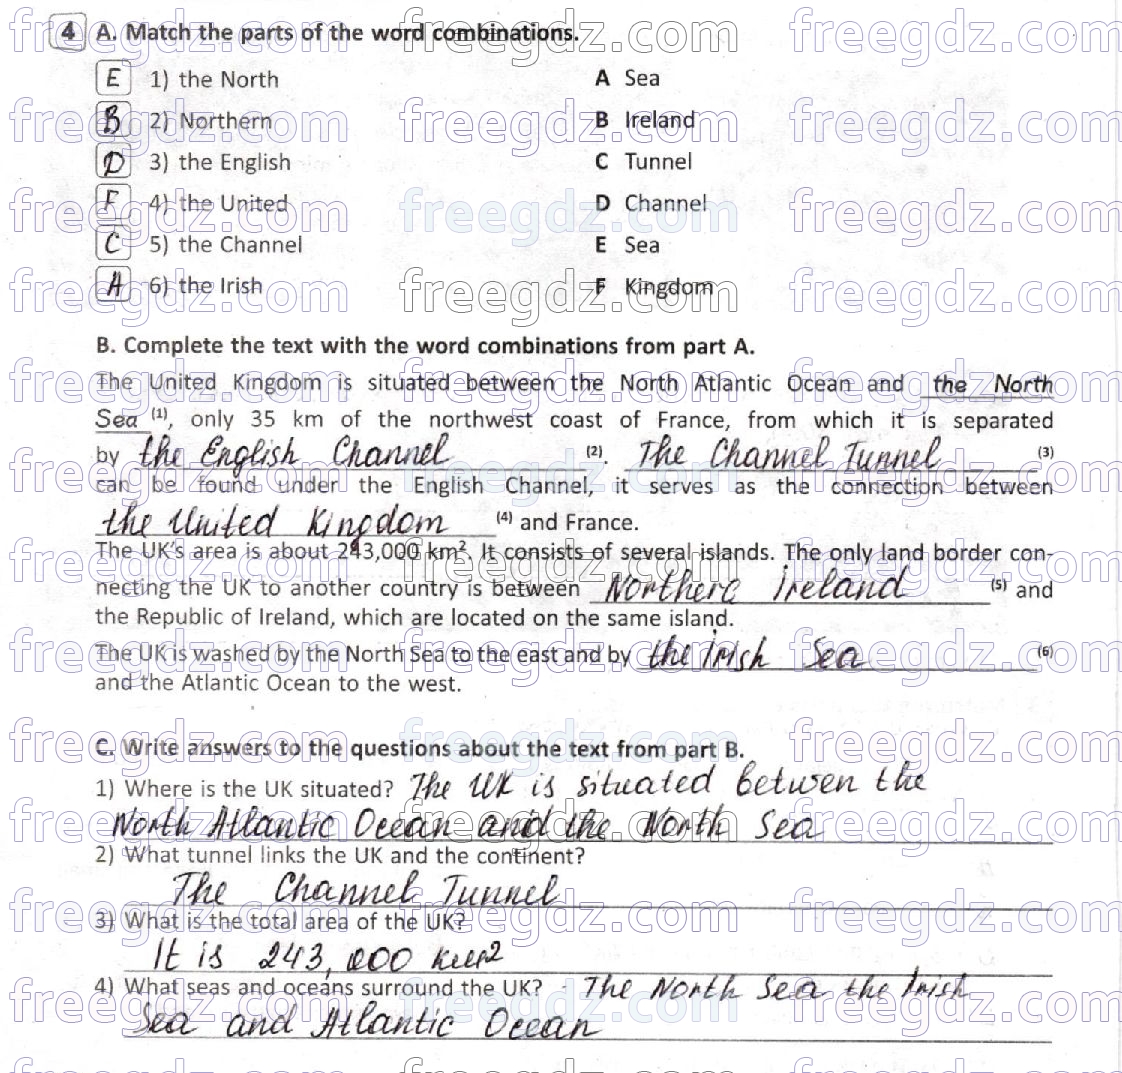 4 A. Match the parts of the word combinations.
E 1) the North A Sea
B 2) Northern B Ireland
D 3) the English C Tunnel
F 4) the United D Channel
C 5) the Channel E Sea
A 6) the Irish F Kingdom
B. Complete the text with the word combinations from part A.
The United Kingdom is situated between the North Atlantic Ocean and the North
Sea (1), only 35 km of the northwest coast of France, from which it is separated
by the English Channel (2). The Channel Tunnel (3)
can be found under the English Channel, it serves as the connection between
the United Kingdom (4) and France.
The UK's area is about 243,000 km². It consists of several islands. The only land border con-
necting the UK to another country is between Northern Ireland (5) and
the Republic of Ireland, which are located on the same island.
The UK is washed by the North Sea to the east and by the Irish Sea (6)
and the Atlantic Ocean to the west.
C. Write answers to the questions about the text from part B.
1) Where is the UK situated? The UK is situated betwen the
North Atlantic Ocean and the North Sea
2) What tunnel links the UK and the continent?
The Channel Tunnel
3) What is the total area of the UK?
It is 243,000 км²
4) What seas and oceans surround the UK? - The North Sea the Irish
Sea and Atlantic Ocean
freegdz.com